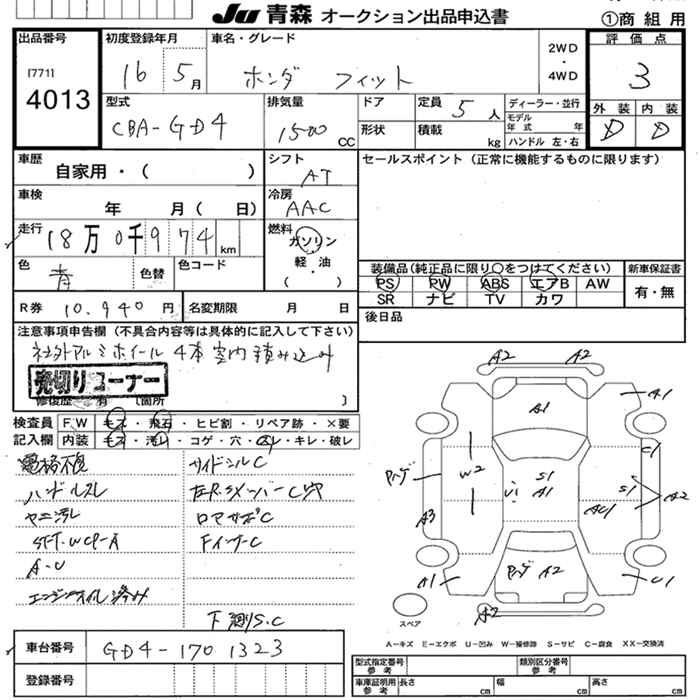 Ju 青森 オークション出品申込書
①商 組 用
出品番号
[771]
4013
初度登録年月
16 5月
車名・グレード
ホンダ フィット
2WD
・
4WD
評 価 点
3
外 装 内 装
D D
型式
CBA-GD4
排気量
1500 CC
ドア
形状
定員 5 人
積載 kg
ディーラー・並行
モデル年式 年
ハンドル 左・右
車歴
自家用・( )
シフト
AT
セールスポイント(正常に機能するものに限ります)
車検
年 月( 日)
冷房
AAC
走行
18万0千974 km
燃料
ガソリン
軽・油
( )
色
青
色替
色コード
装備品(純正品に限り○をつけてください)
PS PW ABS エアB AW
SR ナビ TV カワ
新車保証書
有・無
R券 10.940 円
名変期限 月 日
後日品
注意事項申告欄(不具合内容等は具体的に記入して下さい)
社外アルミホイール 4本 室内積み込み
売切りコーナー
修復歴 有 (箇所 )
検査員
記入欄
FW キズ・飛石・ヒビ割・リペア跡・×要
内装 キズ・汚レ・コゲ・穴・スレ・キレ・破レ
電格不良
ハンドルスレ
ヤニ汚レ
エンジンオイル滲み
サイドシルC
下廻S.C
A2 A2
A1
A1
C1
W2
U1
S1
A1
S1
A2
AC1
A3
A1
A2
C1
A2
スペア
A−キズ E−エクボ U−凹み W−補修跡 S−サビ C−腐食 XX−交換済
車台番号
GD4-1701323
登録番号
型式指定番号
参考
類別区分番号
参考
車庫証明用
参考
長さ cm
幅 cm
高さ cm